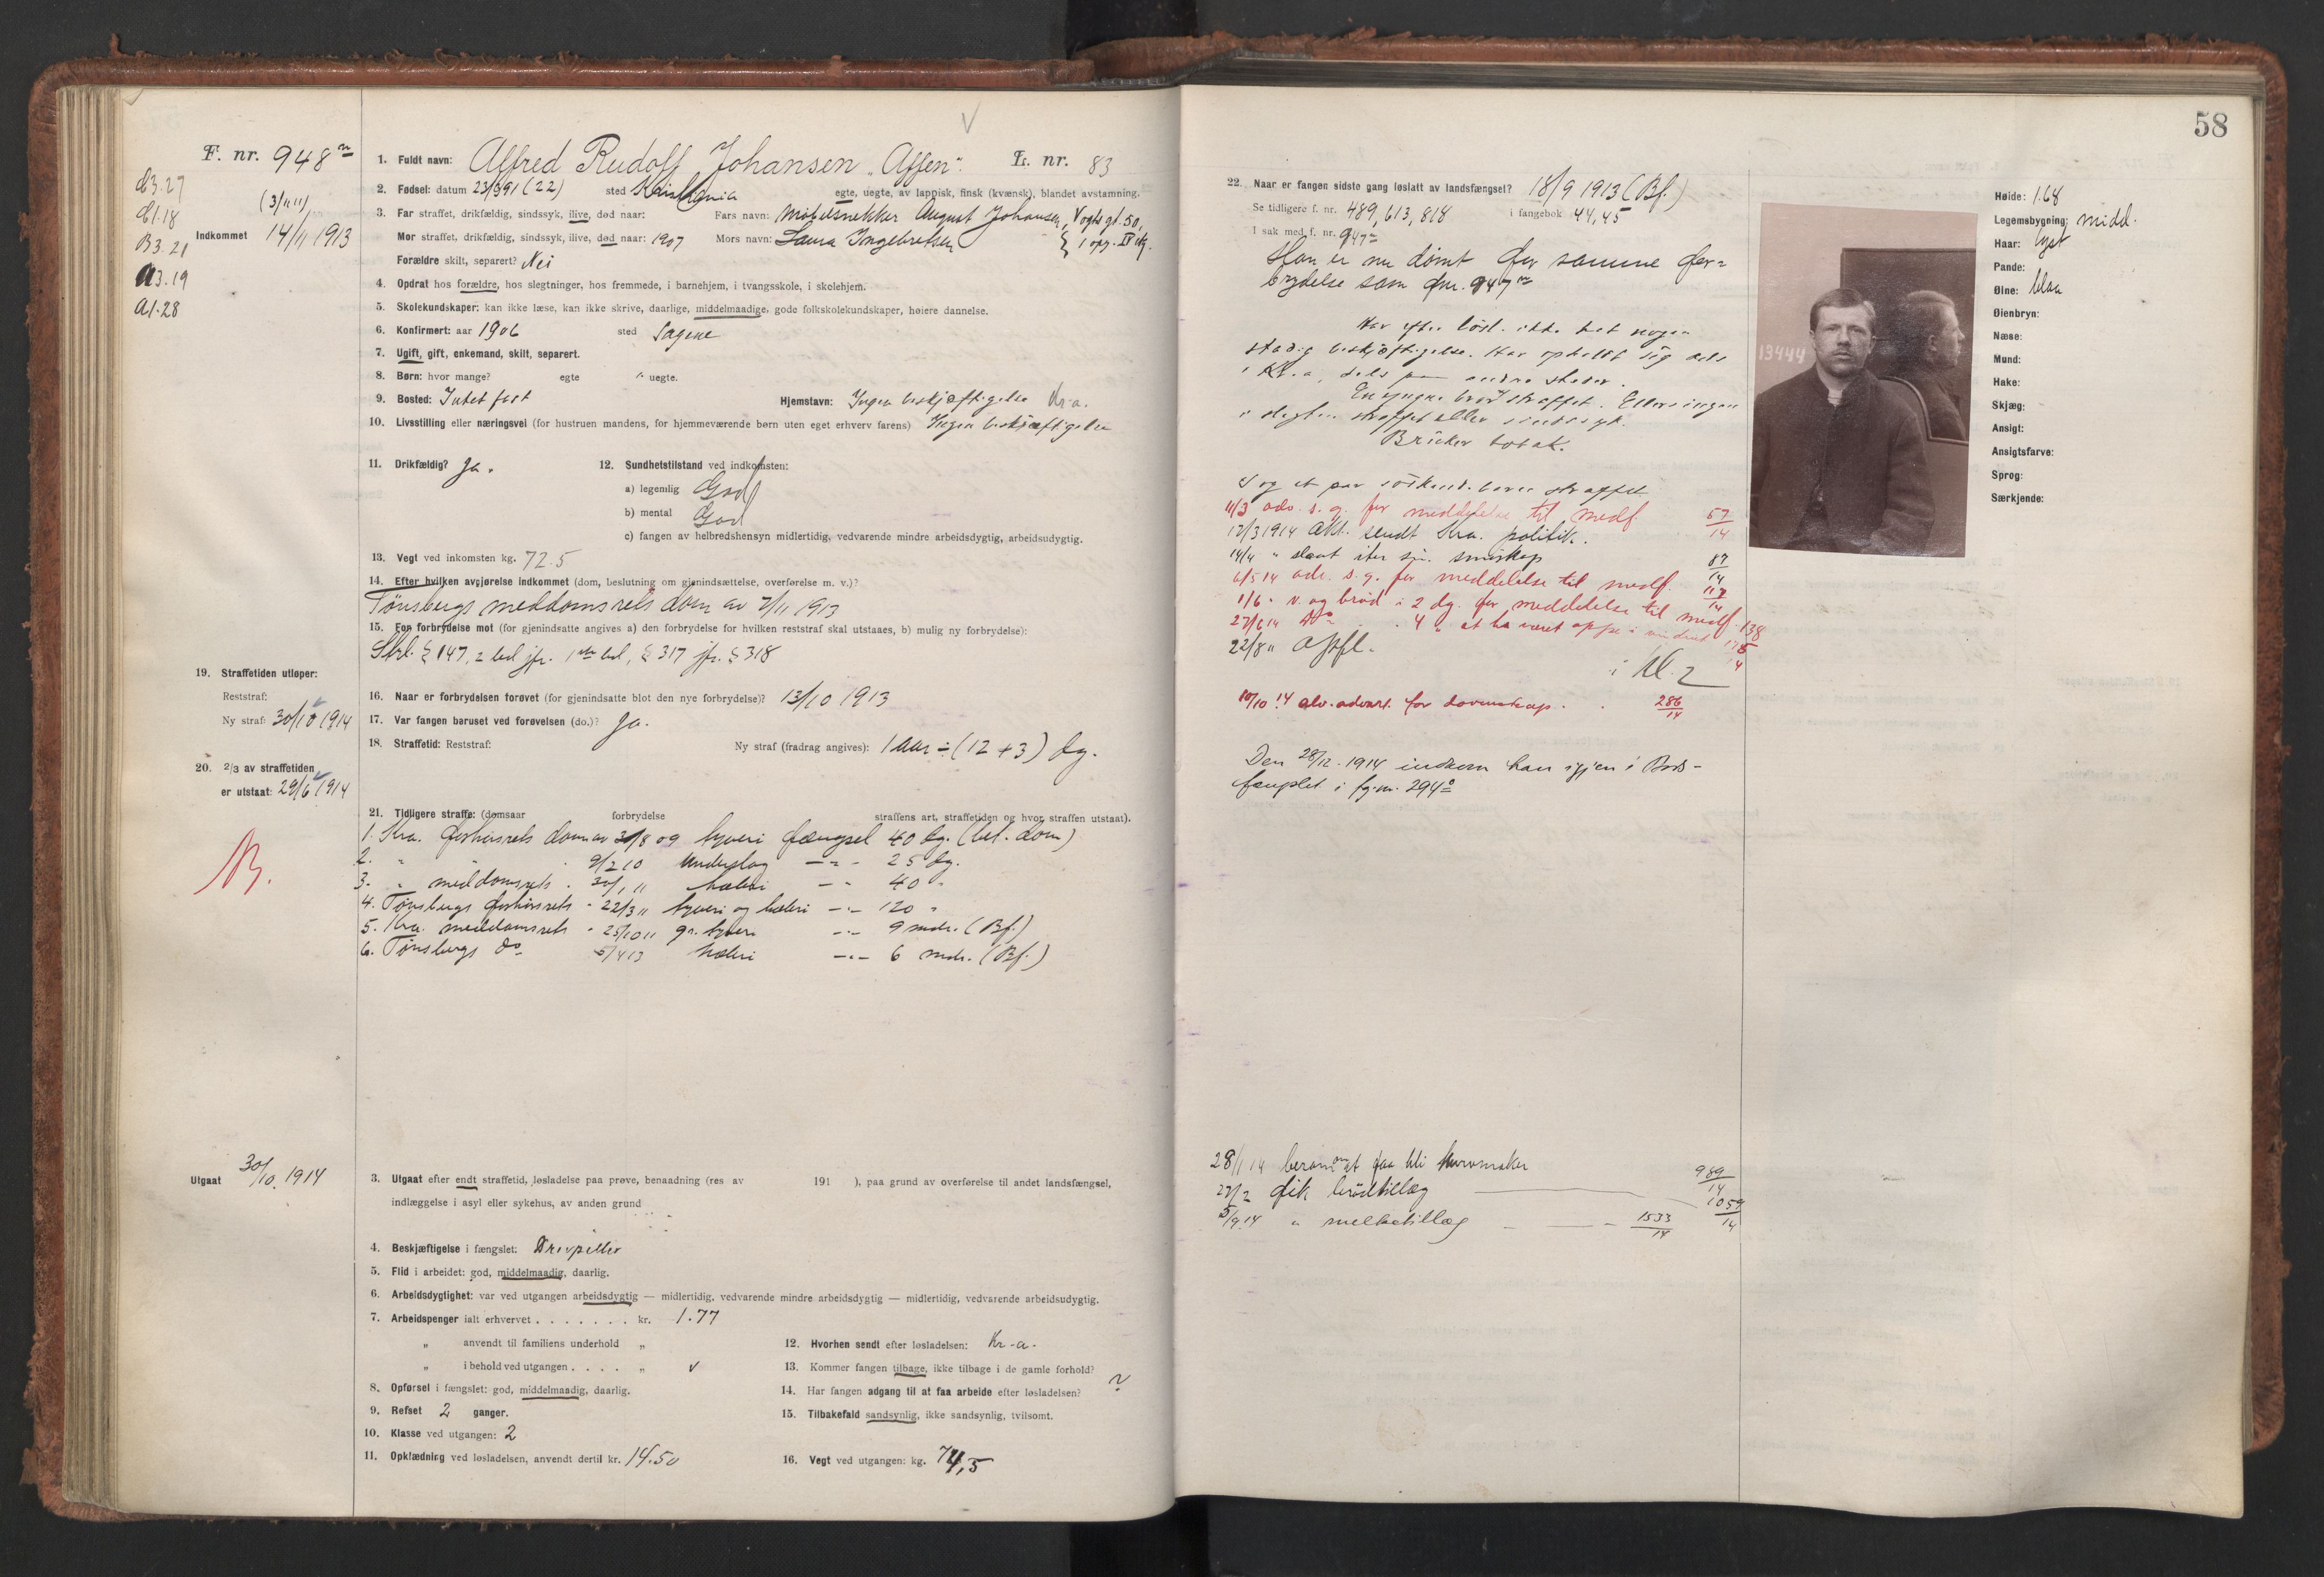 58
F. nr. 948
1. Fuldt navn: Alfred Rudolf Johansen „Affen“. L. nr. 83
B3.27
B1.18
B3.21
A3.19
A1.28
(3/11 11)
Indkommet 14/11 1913
2. Fødsel: datum 23/3 91 (22) sted Kristiania egte, uegte, av lappisk, finsk (kvænsk), blandet avstamning.
3. Far straffet, drikfældig, sindssyk, ilive, død naar: Fars navn: Møbelsnekker August Johansen, Vogts gt. 50,
Mor straffet, drikfældig, sindssyk, ilive, død naar: 1907 Mors navn: Laura Ingebretsen } 1 opg. IV etg.
Forældre skilt, separert? Nei
4. Opdrat hos forældre, hos slegtninger, hos fremmede, i barnehjem, i tvangsskole, i skolehjem.
5. Skolekundskaper: kan ikke læse, kan ikke skrive, daarlige, middelmaadige, gode folkskolekundskaper, høiere dannelse.
6. Konfirmert: aar 1906 sted Sagene
7. Ugift, gift, enkemand, skilt, separert.
8. Børn: hvor mange? egte " uegte.
9. Bosted: Intet fast Hjemstavn: Ingen beskjæftigelse Kr.a.
10. Livsstilling eller næringsvei (for hustruen mandens, for hjemmeværende børn uten eget erhverv farens) Ingen beskjæftigelse
11. Drikfældig? Ja.
12. Sundhetstilstand ved indkomsten:
a) legemlig God
b) mental God
c) fangen av helbredshensyn midlertidig, vedvarende mindre arbeidsdygtig, arbeidsudygtig.
13. Vegt ved inkomsten kg. 72.5
14. Efter hvilken avgjørelse indkommet (dom, beslutning om gjenindsættelse, overførelse m. v.)?
Tønsbergs meddomsrets dom av 7/11 1913
15. For forbrydelse mot (for gjenindsatte angives a) den forbrydelse for hvilken reststraf skal utstaaes, b) mulig ny forbrydelse):
Strl. § 147, 2 led jfr. 1ste led, § 317 jfr. § 318
16. Naar er forbrydelsen forøvet (for gjenindsatte blot den nye forbrydelse)? 13/10 1913
17. Var fangen beruset ved forøvelsen (do.)? Ja.
18. Straffetid: Reststraf: Ny straf (fradrag angives): 1 aar ÷ (12 + 3) dg.
19. Straffetiden utløper:
Reststraf:
Ny straf: 30/10 1914
20. 2/3 av straffetiden
er utstaat: 29/6 1914
B.
21. Tidligere straffe: (domsaar forbrydelse straffens art, straffetiden og hvor straffen utstaat).
1. Kra. forhørsrets dom av 31/8 09 tyveri fængsel 40 dg. (bet. dom)
2. " " 9/2 10 Underslag — " — 25 dg.
3. " meddomsrets " 30/1 11 hæleri — " 40 "
4. Tønsbergs forhørsrets " 22/3 11 tyveri og hæleri — " — 120 "
5. Kra. meddomsrets " 25/10 11 gr. tyveri — " — 9 mdr. (Bf.)
6. Tønsbergs do 5/4 13 hæleri — " — 6 mdr. (Bf.)
Utgaat 30/10. 1914
3. Utgaat efter endt straffetid, løsladelse paa prøve, benaadning (res av 191 ), paa grund av overførelse til andet landsfængsel,
indlæggelse i asyl eller sykehus, av anden grund
4. Beskjæftigelse i fængslet: Drevpiller
5. Flid i arbeidet: god, middelmaadig, daarlig.
6. Arbeidsdygtighet: var ved utgangen arbeidsdygtig — midlertidig, vedvarende mindre arbeidsdygtig — midlertidig, vedvarende arbeidsudygtig.
7. Arbeidspenger ialt erhvervet . . . . . . . kr. 1.77
" anvendt til familiens underhold "
" i behold ved utgangen . . . . "
8. Opførsel i fængslet: god, middelmaadig, daarlig.
9. Refset 2 ganger.
10. Klasse ved utgangen: 2
11. Opklædning ved løsladelsen, anvendt dertil kr. 14.50
12. Hvorhen sendt efter løsladelsen: Kr.a.
13. Kommer fangen tilbage, ikke tilbage i de gamle forhold?
14. Har fangen adgang til at faa arbeide efter løsladelsen? ?
15. Tilbakefald sandsynlig, ikke sandsynlig, tvilsomt.
16. Vegt ved utgangen: kg. 74,5
22. Naar er fangen sidste gang løslatt av landsfængsel? 18/9 1913 (Bf.)
Se tidligere f. nr. 489, 613, 818 i fangebok 44, 45
I sak med f. nr. 947
Han er nu dømt for samme for=
brydelse som fnr. 947
Har efter løsl. ikke hat nogen
stadig beskjæftigelse. Har opholdt sig dels
i Kr.a, dels paa andre steder.
En yngre bror straffet. Ellers ingen
i slegten straffet eller sindssyk.
Bruker tobak.
og et par søskendebarn straffet
11/3 adv. s. g. for meddelelse til medf. 57/14
17/3 1914 Akt. sendt Kra. politik.
14/4 " 87/14
6/5 14 adv. s. g. for meddelelse til medf. 117/14
1/6 " v. og brød i 2 dg. for meddelelse til medf. 138
27/6 14 do " 4 " at ha været oppe i vinduet 175
22/8 " opfl.
i Kl. 2
10/10 14 alv. advars. for dovenskap. 286/14
Den 28/12. 1914 indkom han igjen i Bods-
fængslet i fg.nr. 294
28/1 14 berammet om at faa bli kurvmaker 989/14
27/2 fik brødtillæg 1059/14
5/9 14 " melketillæg 1533/14
13444
Høide: 1.68
Legemsbygning: midd.
Haar: lyst
Pande:
Ølne: blaa
Øienbryn:
Næse:
Mund:
Hake:
Skjæg:
Ansigt:
Ansigtsfarve:
Sprog:
Særkjende: